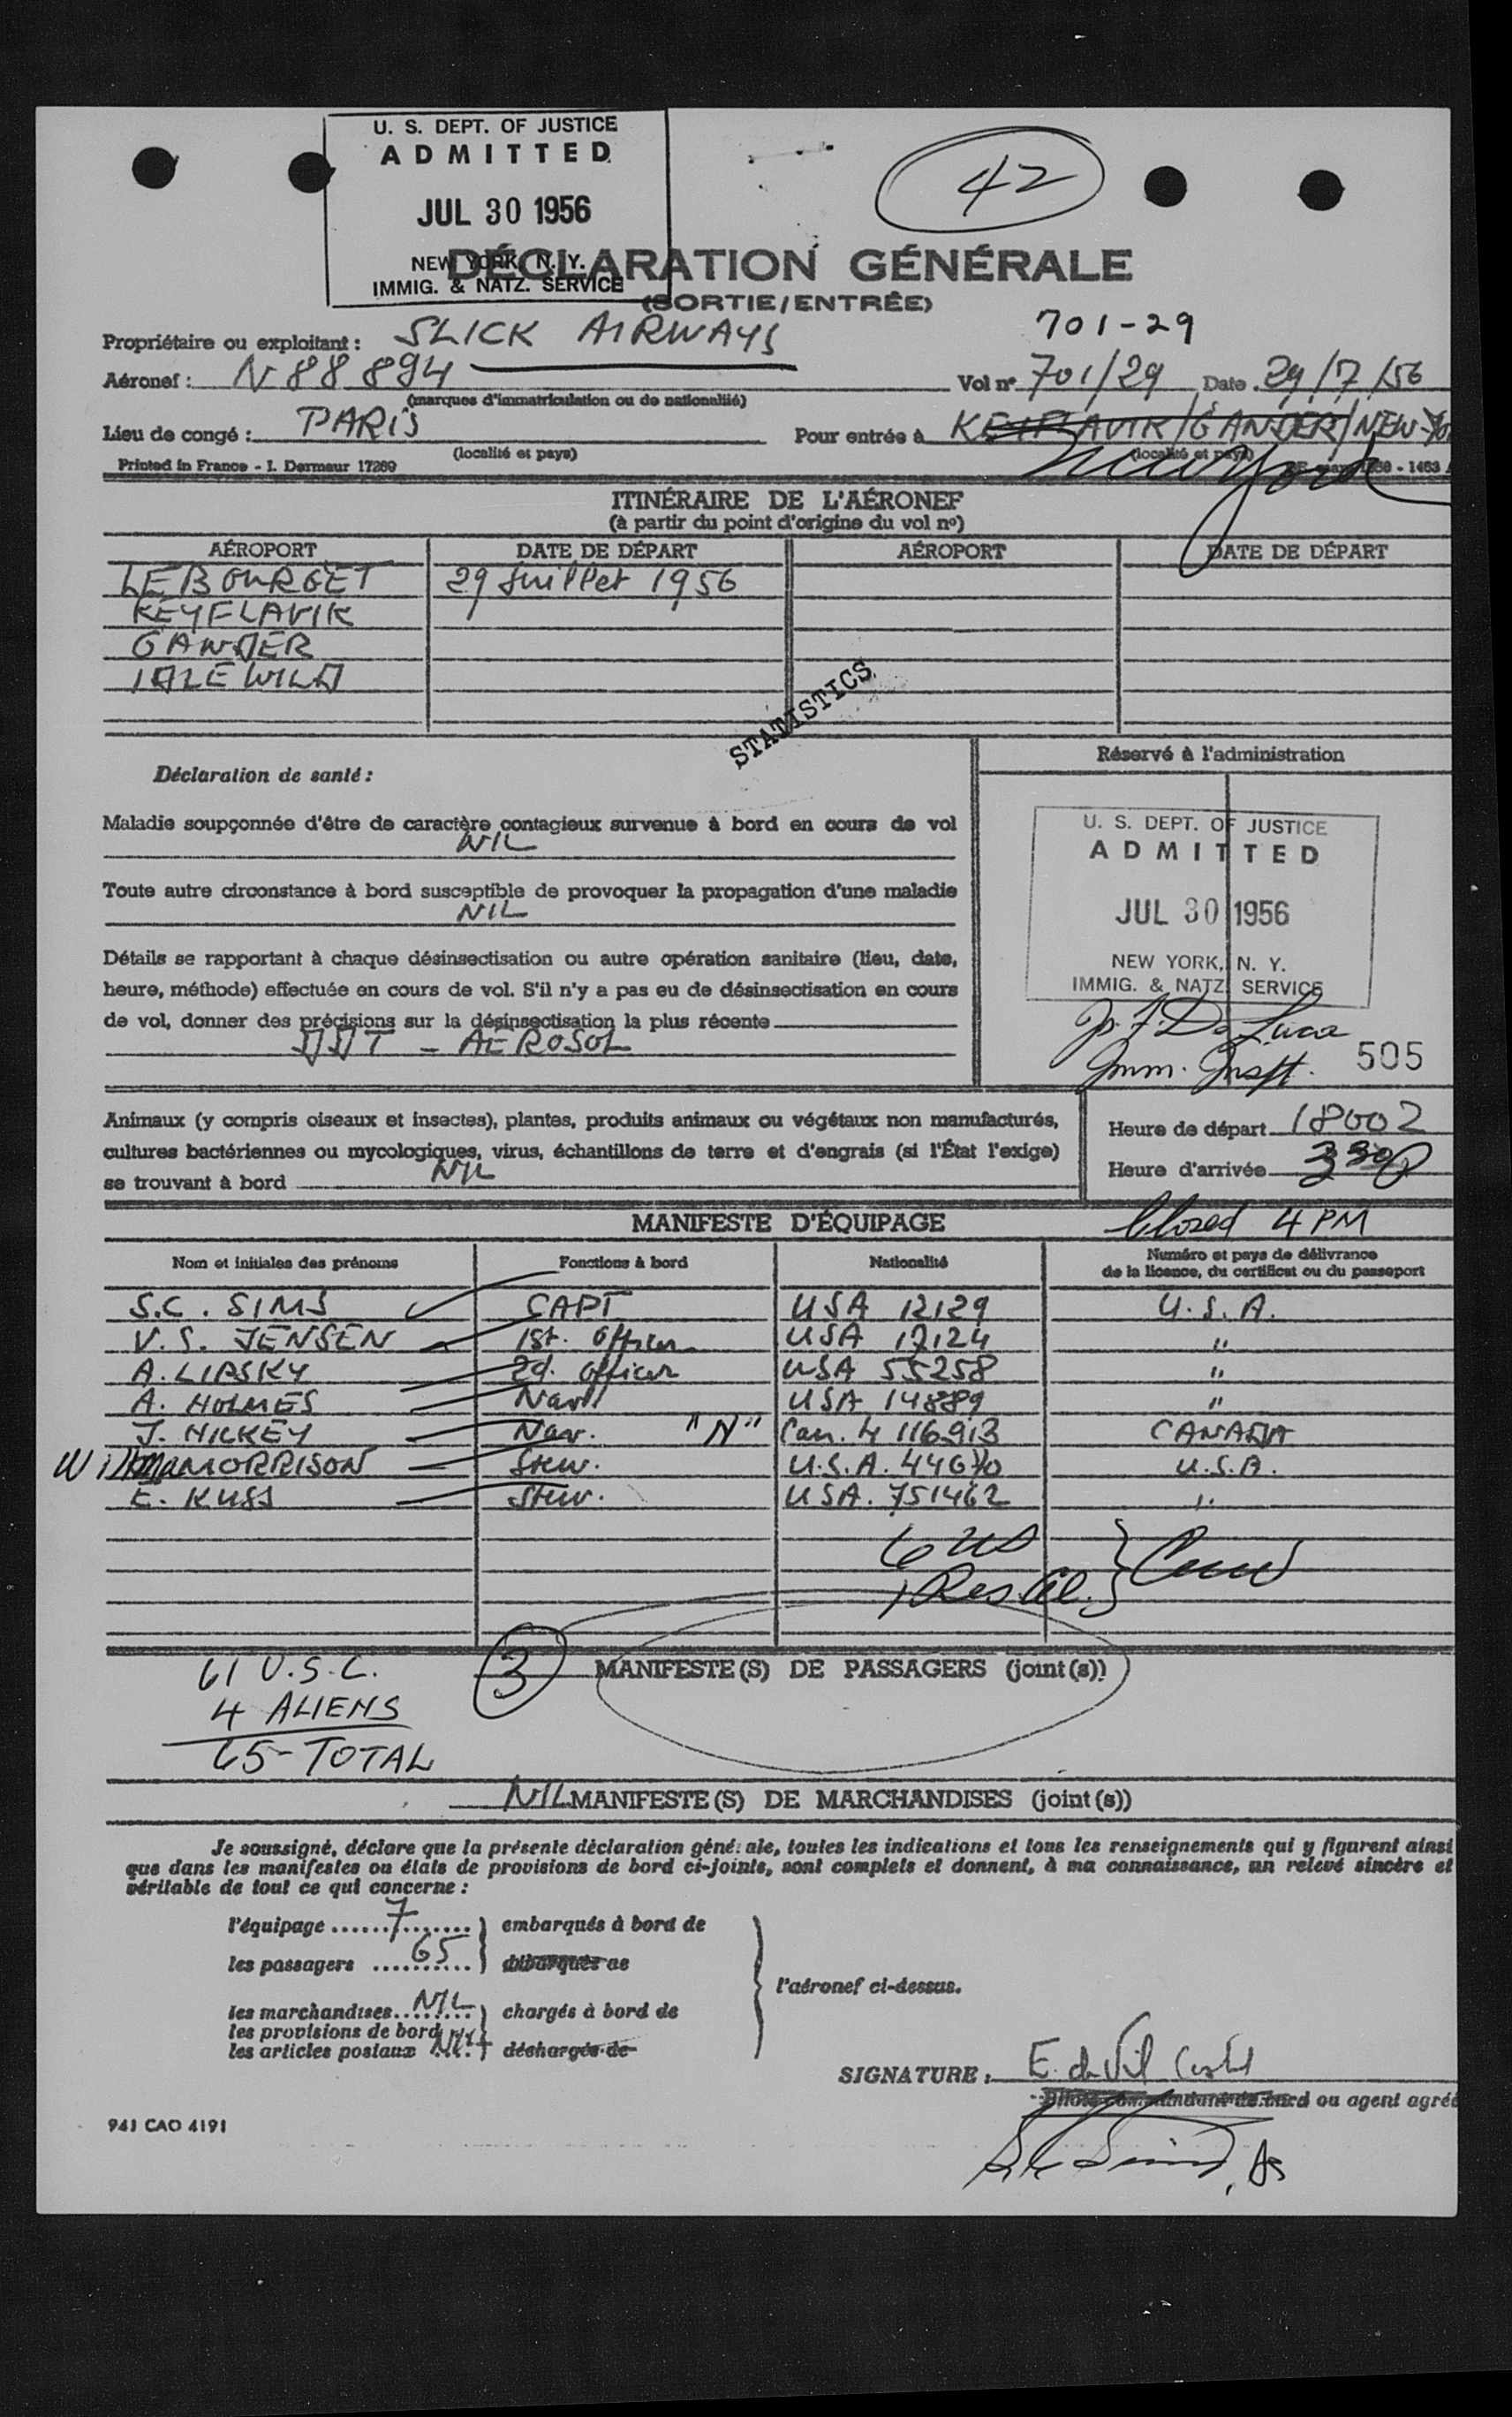 U. S. DEPT. OF JUSTICE
ADMITTED
JUL 30 1956
NEW YORK, N. Y.
IMMIG. & NATZ. SERVICE
42
DÉCLARATION GÉNÉRALE
(SORTIE/ENTRÉE)
701-29
Propriétaire ou exploitant : SLICK AIRWAYS
Aéronef : N 88 894 Vol nº 701/29 Date 29/7/56
(marques d'immatriculation ou de nationalité)
Lieu de congé : PARIS Pour entrée à KEYFLAVIK/GANDER/NEW-YO
(localité et pays) (localité et pays)
New York
Printed in France - I. Dermeur 17269 1463
ITINÉRAIRE DE L'AÉRONEF
(à partir du point d'origine du vol nº)
AÉROPORT DATE DE DÉPART AÉROPORT DATE DE DÉPART
LE BOURGET 29 Juillet 1956
KEYFLAVIK
GANDER
IDLEWILD
STATISTICS
Déclaration de santé :
Réservé à l'administration
Maladie soupçonnée d'être de caractère contagieux survenue à bord en cours de vol
NIL
Toute autre circonstance à bord susceptible de provoquer la propagation d'une maladie
NIL
Détails se rapportant à chaque désinsectisation ou autre opération sanitaire (lieu, date,
heure, méthode) effectuée en cours de vol. S'il n'y a pas eu de désinsectisation en cours
de vol, donner des précisions sur la désinsectisation la plus récente
DDT - AEROSOL
U. S. DEPT. OF JUSTICE
ADMITTED
JUL 30 1956
NEW YORK, N. Y.
IMMIG. & NATZ. SERVICE
De Luca
Imm. Inspt. 505
Animaux (y compris oiseaux et insectes), plantes, produits animaux ou végétaux non manufacturés,
cultures bactériennes ou mycologiques, virus, échantillons de terre et d'engrais (si l'État l'exige)
se trouvant à bord NIL
Heure de départ 1800Z
Heure d'arrivée 330P
MANIFESTE D'ÉQUIPAGE
Closed 4 PM
Nom et initiales des prénoms Fonctions à bord Nationalité Numéro et pays de délivrance
de la licence, du certificat ou du passeport
S.C. SIMS CAPT USA 12129 U.S.A.
V.S. JENSEN 1st. Officer USA 12124 "
A. LIPSKY 2d. Officer USA 55258 "
A. HOLMES Nav. USA 14889 "
J. HICKEY Nav. "N" Can. 4 116913 CANADA
MORRISON Stew. U.S.A. U.S.A.
E. KUSS Stew. USA. 751462 "
6 US
1 Res. Al. } Crew
61 U.S.C.
4 ALIENS
65-TOTAL
3 MANIFESTE(S) DE PASSAGERS (joint(s))
NIL MANIFESTE(S) DE MARCHANDISES (joint(s))
Je soussigné, déclare que la présente déclaration générale, toutes les indications et tous les renseignements qui y figurent ainsi
que dans les manifestes ou états de provisions de bord ci-joints, sont complets et donnent, à ma connaissance, un relevé sincère et
véritable de tout ce qui concerne :
l'équipage 7 embarqués à bord de
les passagers 65 débarqués de
l'aéronef ci-dessus.
les marchandises NIL chargés à bord de
les provisions de bord NIL
les articles postaux NIL déchargés de
SIGNATURE :
Pilote commandant de bord ou agent agréé
941 CAO 4191